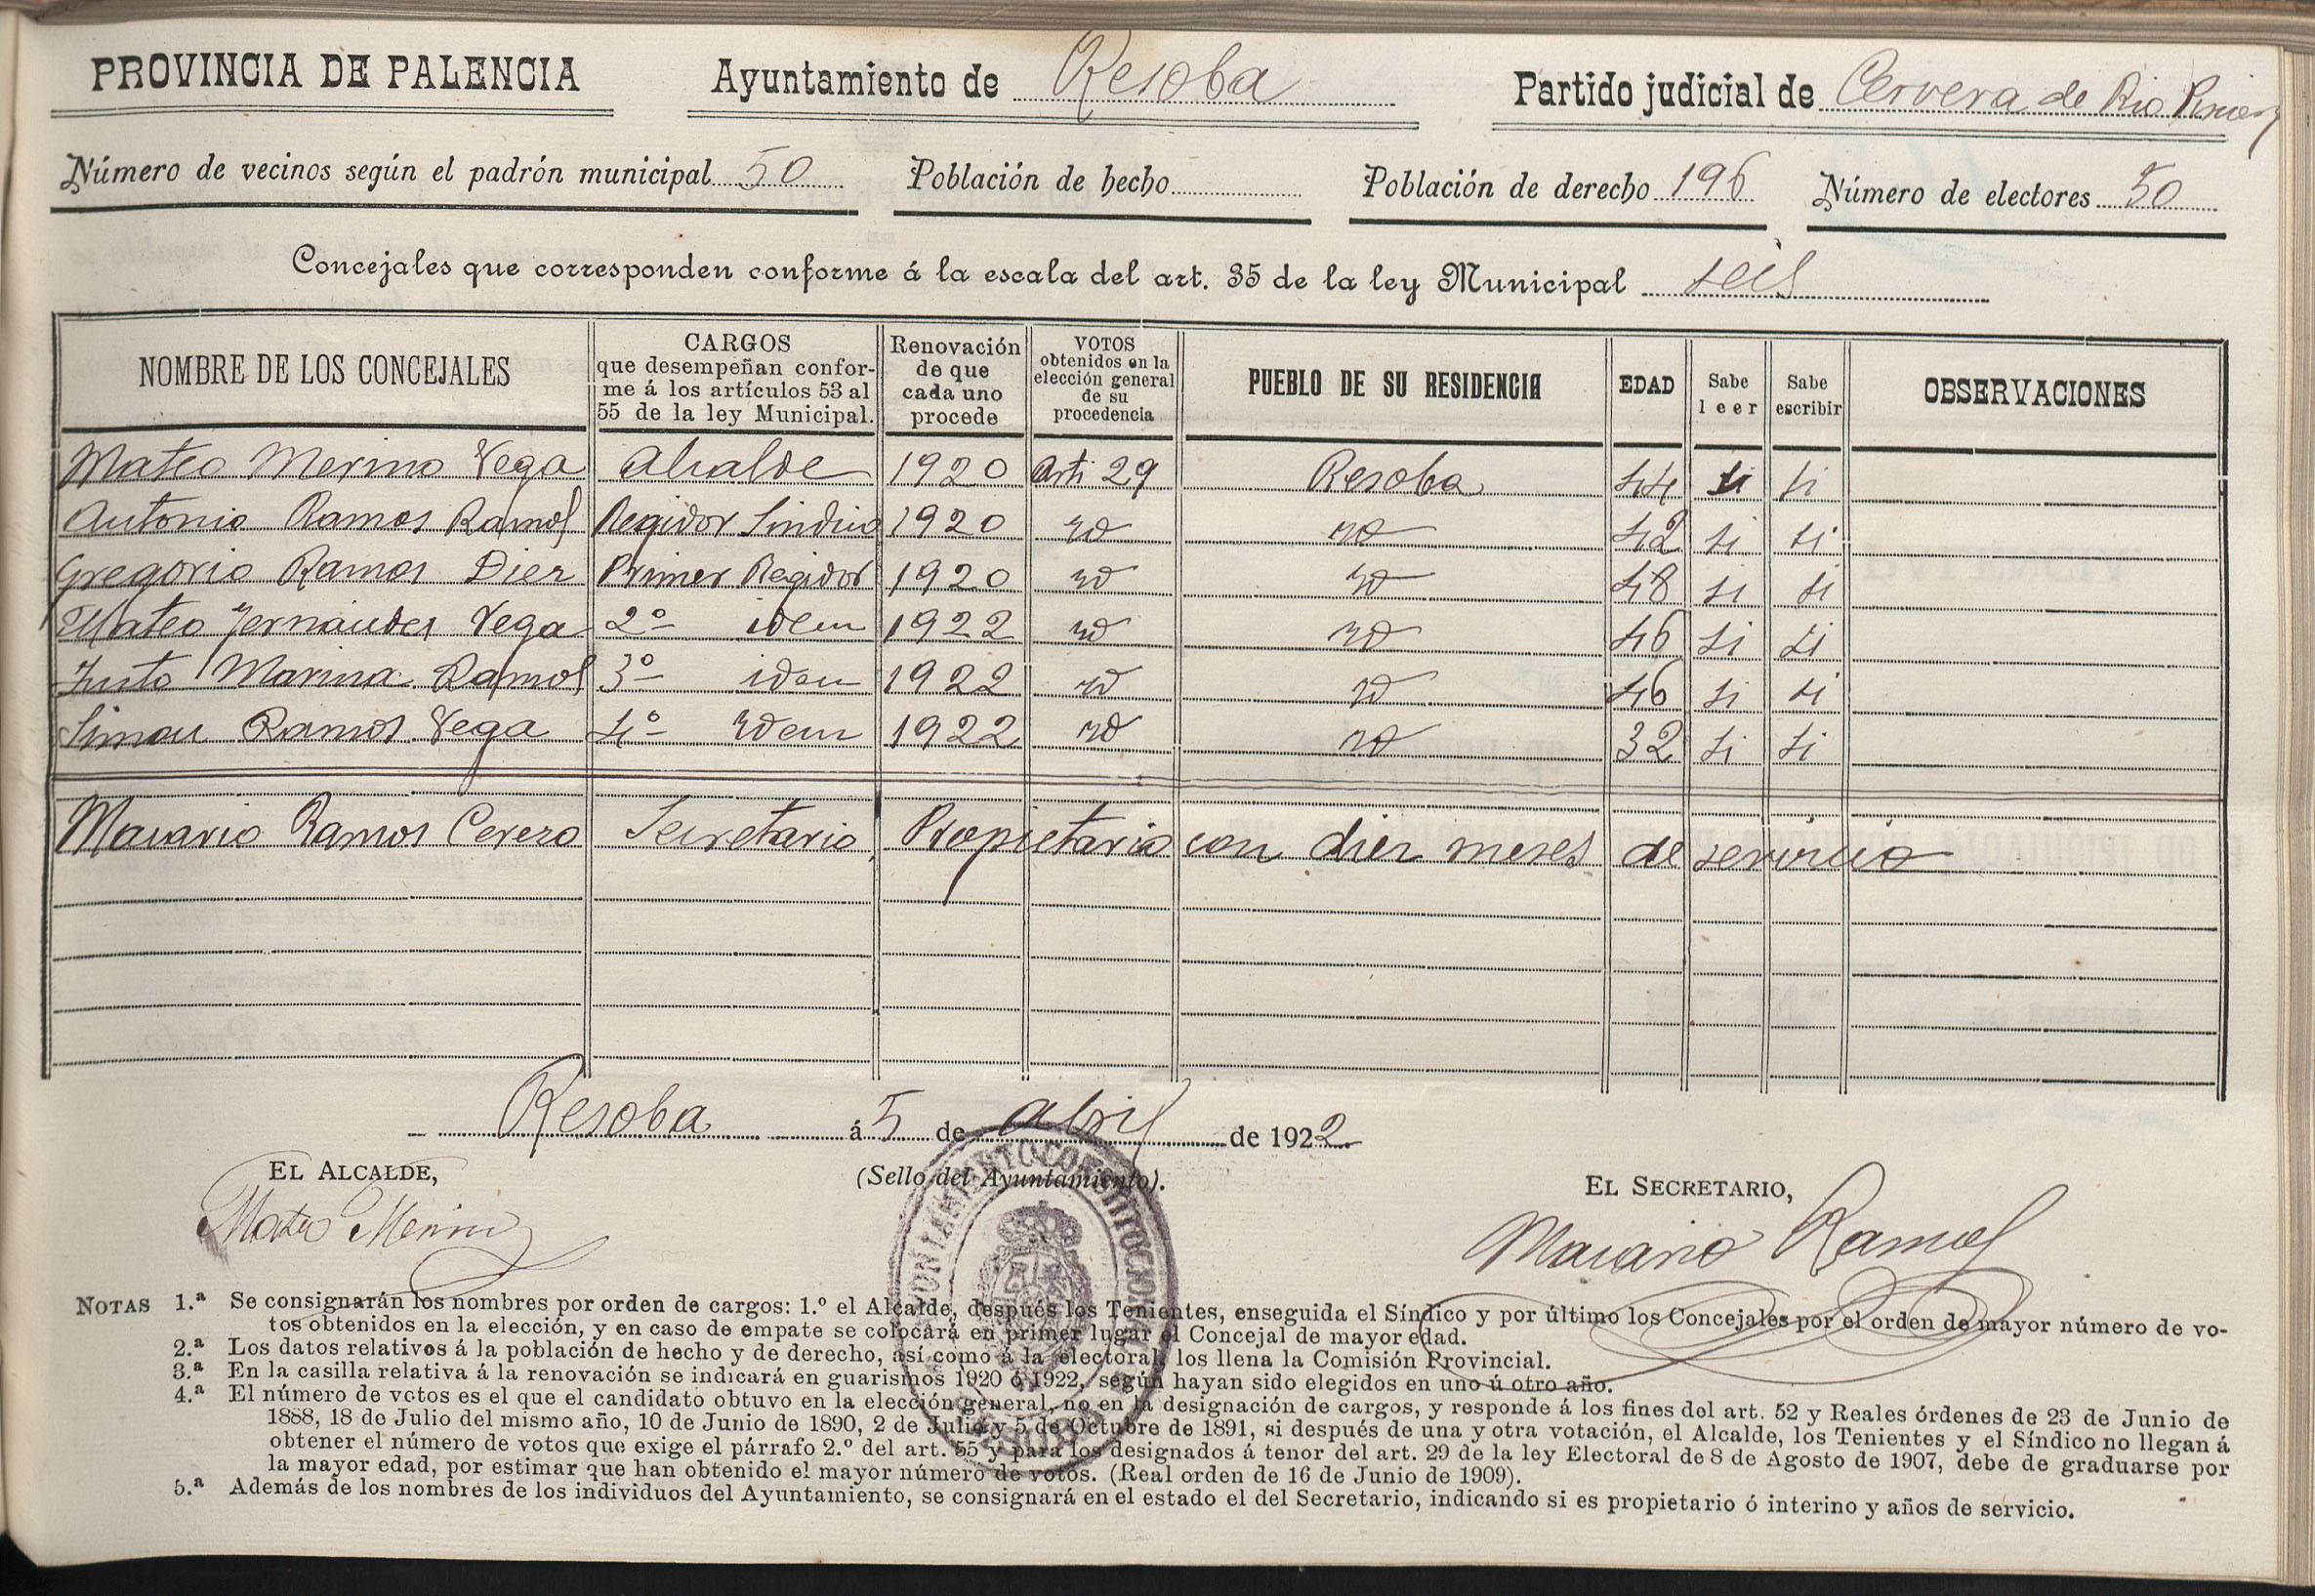 PROVINCIA DE PALENCIA Ayuntamiento de Resoba Partido judicial de Cervera de Rio Pisuerg
Número de vecinos según el padrón municipal 50 Población de hecho Población de derecho 196 Número de electores 50
Concejales que corresponden conforme á la escala del art. 35 de la ley Municipal seis
NOMBRE DE LOS CONCEJALES
CARGOS
que desempeñan confor-
me á los artículos 53 al
55 de la ley Municipal.
Renovación
de que
cada uno
procede
VOTOS
obtenidos en la
elección general
de su
procedencia
PUEBLO DE SU RESIDENCIA
EDAD
Sabe
leer
Sabe
escribir
OBSERVACIONES
Mateo Merino Vega Alcalde 1920 Arti 29 Resoba 44 si si
Antonio Ramos Ramos Regidor Sindico 1920 id id 42 si si
Gregorio Ramos Diez Primer Regidor 1920 id id 48 si si
Mateo Fernández Vega 2º idem 1922 id id 46 si si
Justo Marina Ramos 3º idem 1922 id id 46 si si
Simon Ramos Vega 4º idem 1922 id id 32 si si
Macario Ramos Cerezo Secretario, Propietario con diez meses de servicio
Resoba á 5 de abril de 1922
EL ALCALDE,
(Sello del Ayuntamiento).
EL SECRETARIO,
Mateo Merino
Macario Ramos
NOTAS 1.ª Se consignarán los nombres por orden de cargos: 1.º el Alcalde, después los Tenientes, enseguida el Síndico y por último los Concejales por el orden de mayor número de vo-
tos obtenidos en la elección, y en caso de empate se colocará en primer lugar el Concejal de mayor edad.
2.ª Los datos relativos á la población de hecho y de derecho, así como á la electoral, los llena la Comisión Provincial.
3.ª En la casilla relativa á la renovación se indicará en guarismos 1920 ó 1922, según hayan sido elegidos en uno ú otro año.
4.ª El número de votos es el que el candidato obtuvo en la elección general, no en la designación de cargos, y responde á los fines del art. 52 y Reales órdenes de 23 de Junio de
1888, 18 de Julio del mismo año, 10 de Junio de 1890, 2 de Julio y 5 de Octubre de 1891, si después de una y otra votación, el Alcalde, los Tenientes y el Síndico no llegan á
obtener el número de votos que exige el párrafo 2.º del art. 55 y para los designados á tenor del art. 29 de la ley Electoral de 8 de Agosto de 1907, debe de graduarse por
la mayor edad, por estimar que han obtenido el mayor número de votos. (Real orden de 16 de Junio de 1909).
5.ª Además de los nombres de los individuos del Ayuntamiento, se consignará en el estado el del Secretario, indicando si es propietario ó interino y años de servicio.